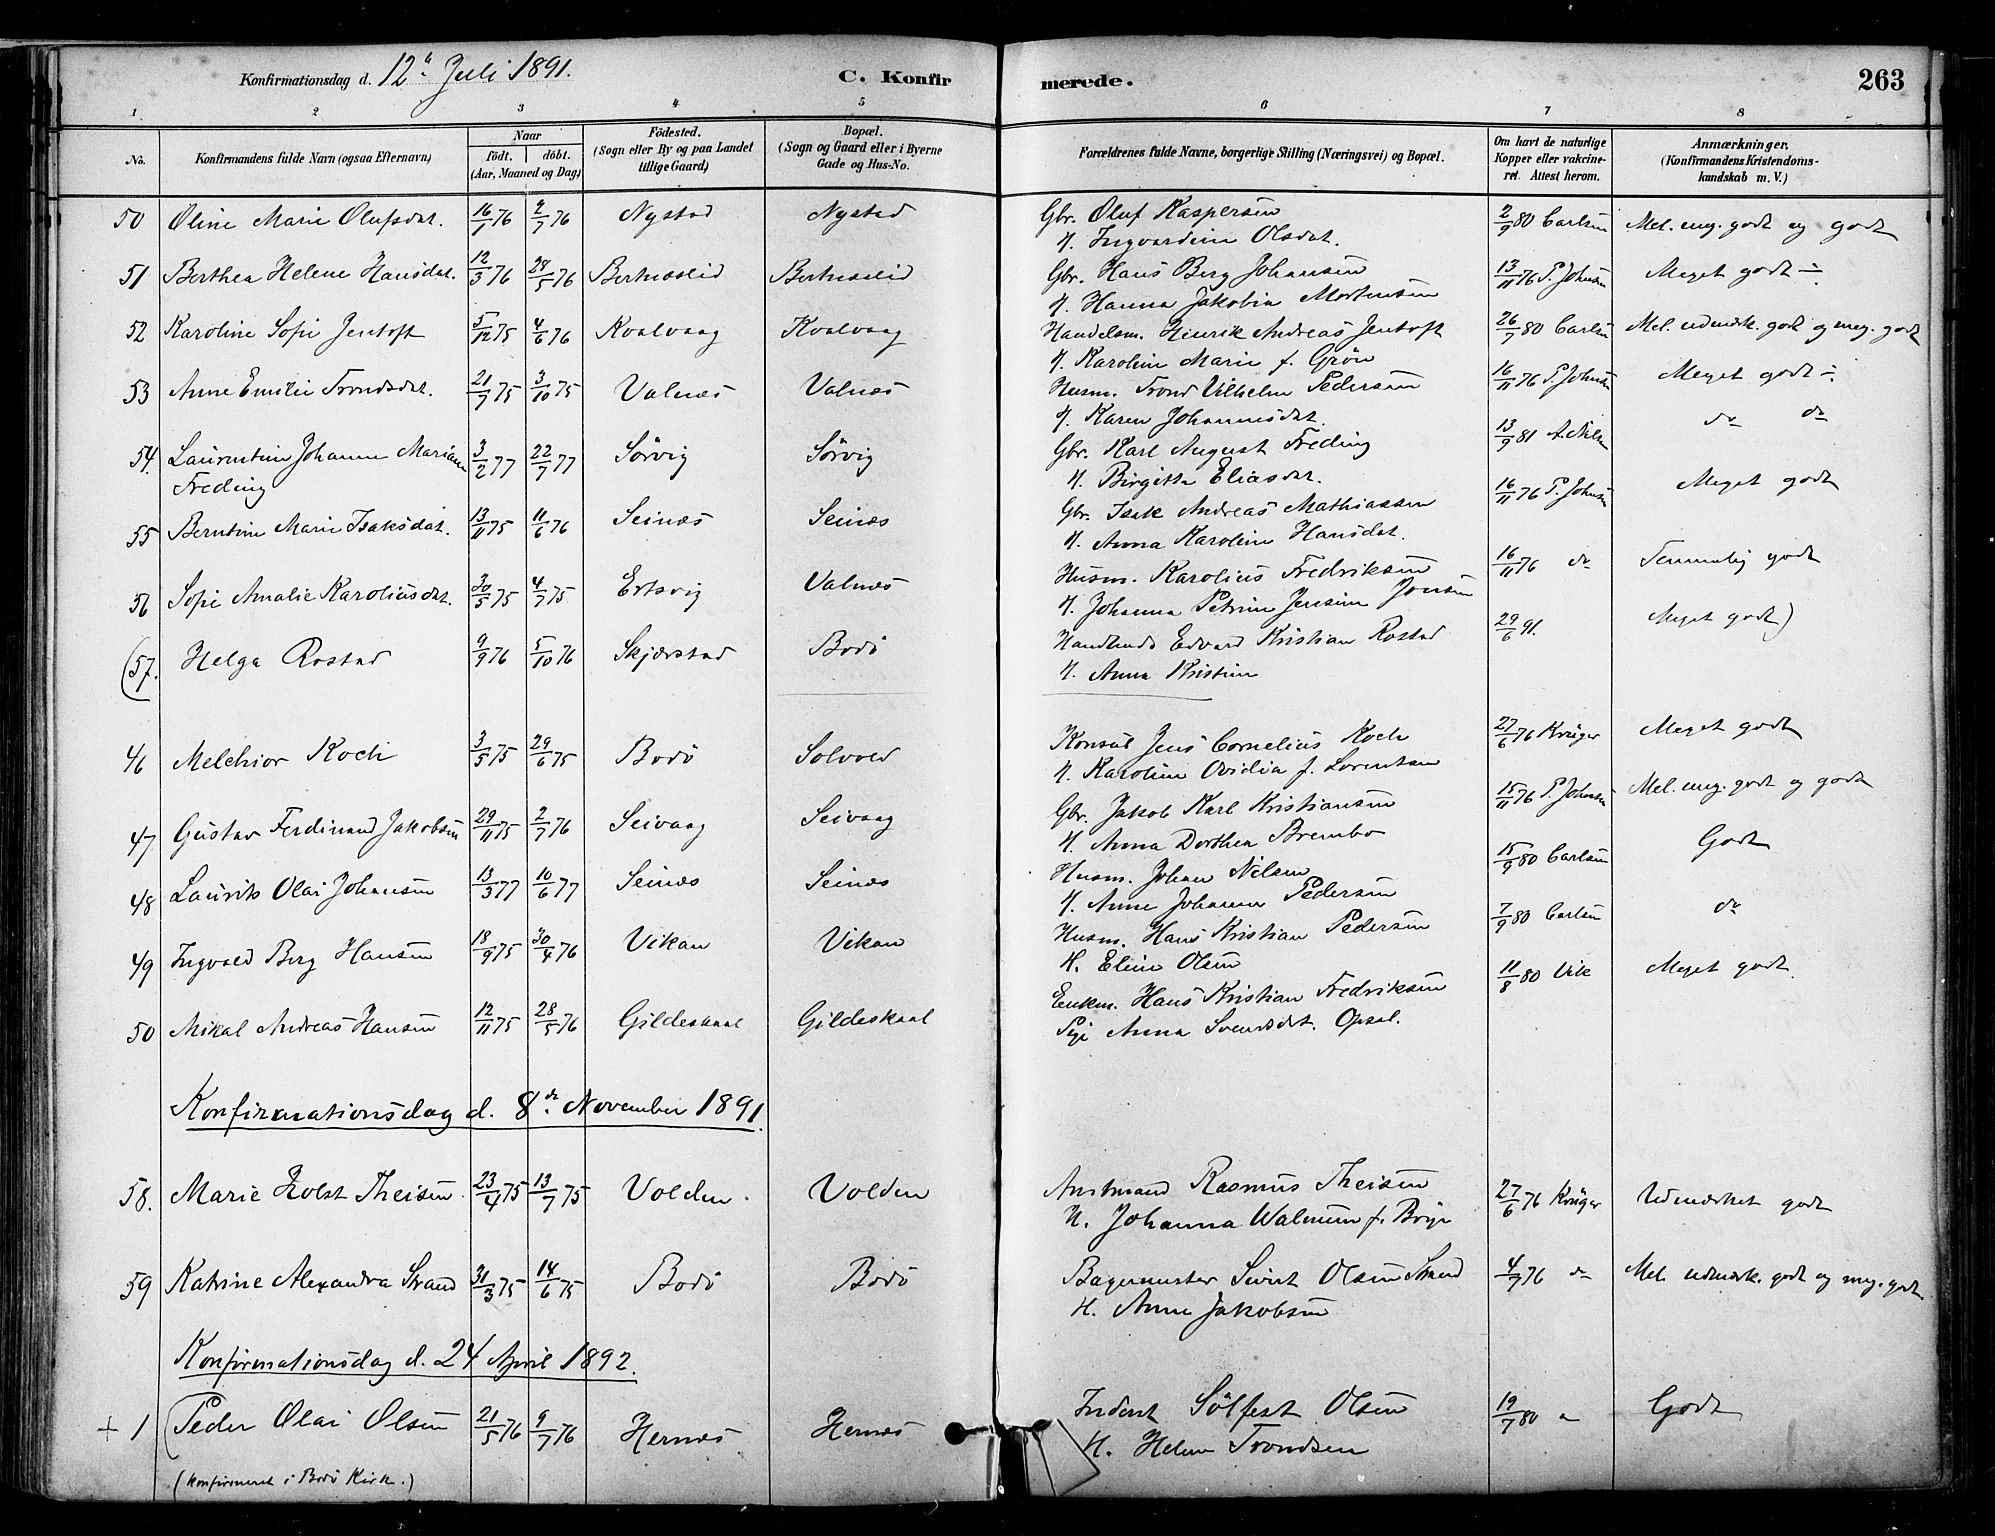 Konfirmationsdag d. 12te Juli 1891.
C. Konfirmerede.
263
1 2 3 4 5 6 7 8
No. Konfirmandens fulde Navn (ogsaa Efternavn) Naar født. døbt. (Aar, Maaned og Dag) Fødested. (Sogn eller By og paa Landet tillige Gaard) Bopæl. (Sogn og Gaard eller i Byerne Gade og Hus-No. Forældrenes fulde Navne, borgerlige Stilling (Næringsvei) og Bopæl. Om havt de naturlige Kopper eller vakcineret. Attest herom. Anmærkninger. (Konfirmandens Kristendomskundskab m. V.)
50 Oline Marie Olufsdat. 16/1 76 2/7 76 Nystad Nystad Gbr. Oluf Kaspersen 2/9 80 Carlsen Mel. meg. godt og godt
H. Ingvardine Olsdat.
51 Berthea Helene Hansdat. 12/3 76 28/5 76 Bertnæslid Bertnæslid Gbr. Hans Berg Johansen 13/11 76 P. Johnsen Meget godt ÷
H. Hanna Jakobia Mortensen
52 Karoline Sofie Jentoft 5/12 75 4/6 76 Kvalvaag Kvalvaag Handelsm. Henrik Andreas Jentoft 26/7 80 Carlsen Mel. udmærk. godt og meg. godt
H. Karoline Marie f. Grön
53 Anne Emilie Trondsdat. 21/7 75 3/10 75 Valnæs Valnæs Husm. Trond Vilhelm Pedersen 16/11 76 P. Johnsen Meget godt ÷
H. Karen Johannesdat.
54 Laurentine Johanne Mariane Freding 3/2 77 22/7 77 Sörvig Sörvig Gbr. Karl August Freding 13/9 81 A. Nilsen do do
H. Birgitte Eliasdat.
55 Berntine Marie Isaksdat. 13/11 75 11/6 76 Seinæs Seinæs Gbr. Isak Andreas Mathiassen 16/11 76 P. Johnsen Meget godt
H. Anna Karoline Hansdat.
56 Sofie Amalie Karoliusdat. 30/5 75 4/7 75 Ertsvig Valnæs Husm. Karolius Fredriksen 16/11 76 do Temmelig godt
H. Johanna Petrine Jensine Jonsen
(57. Helga Rostad 9/9 76 5/10 76 Skjærstad Bodö Handlende Edvard Kristian Rostad 29/6 91. Meget godt)
H. Anna Kristine
46 Melchior Koch 3/5 75 29/6 75 Bodö Solvold Konsul Jens Cornelius Koch 27/6 76 Krüger Meget godt
H. Karoline Ovidia f. Lorentsen
47 Gustav Ferdinand Jakobsen 29/11 75 2/7 76 Seivaag Seivaag Gbr. Jakob Karl Kristiansen 15/11 76 P. Johnsen Mel. meg. godt og godt
H. Anna Dorthea Brembo
48 Laurits Olai Johansen 13/3 77 10/6 77 Seinæs Seinæs Husm. Johan Nilsen 15/9 80 Carlsen Godt
H. Anne Johanne Pedersen
49 Ingvald Berg Hansen 18/9 75 30/4 76 Vikan Vikan Husm. Hans Kristian Pedersen 7/9 80 Carlsen do
H. Eline Olsen
50 Mikal Andreas Hansen 12/11 75 28/5 76 Gildeskaal Gildeskaal Enkm. Hans Kristian Fredriksen 11/8 80 Vik Meget godt.
Pige Anna Svendsdat. Opsal.
Konfirmationsdag d. 8de November 1891.
58. Marie Holst Theisen 23/4 75 13/7 75 Volden Volden Amtmand Rasmus Theisen 27/6 76 Krüger Udmærket godt
H. Johanna Walmine f.
59 Katrine Alexandra Strand 31/3 75 14/6 75 Bodö Bodö Bagermester Sivert Olsen Strand 4/7 76 do Mel. udmærk. godt og meg. godt
H. Anne Jakobsen
Konfirmationsdag d. 24 April 1892.
+ 1 (Peder Olai Olsen 21/5 76 9/7 76 Hernæs Hernæs Inderst Sölfest Olsen 19/7 80 Godt
(konfirmeret i Bodö Kirk.) H. Helene Trondsen